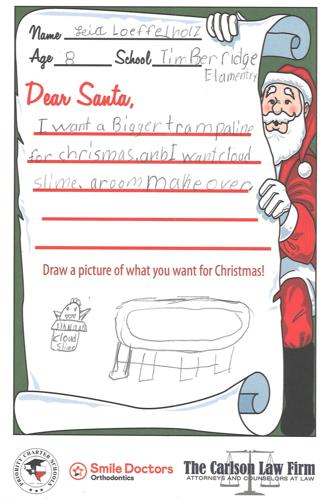 Name Leia Loeffelholz
Age 8 School Tim Berridge
Elamentry
Dear Santa,
I want a Bigger trampaline
for chrismas. anb I want cloud
slime. a room makeover.
Draw a picture of what you want for Christmas!
cloud
slime
PRIORITY CHARTER SCHOOLS
Smile Doctors
Orthodontics
The Carlson Law Firm
ATTORNEYS AND COUNSELORS AT LAW